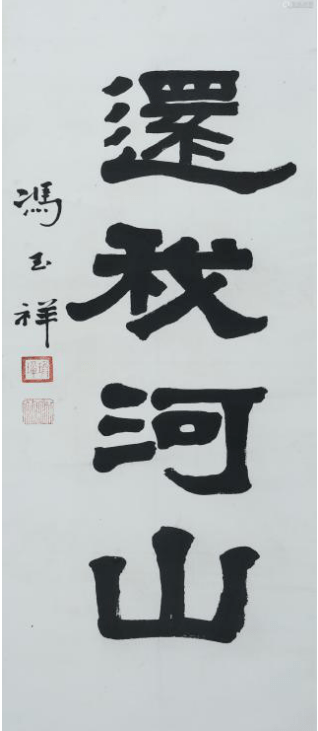 還我河山
馮玉祥